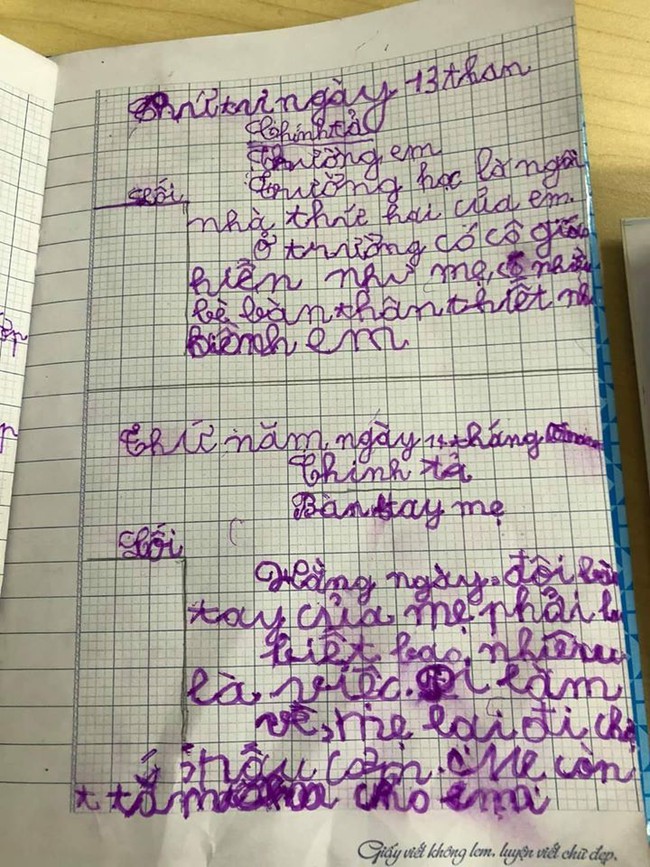 Thứ tư ngày 13 than
Chính tả
Trường em
Lỗi Trường học là ngôi
nhà thứ hai của em.
Ở trường có cô giáo
hiền như mẹ, có nhiều
bè bạn thân thiết như
em
Thứ năm ngày 14 tháng
Chính tả
Bàn tay mẹ
Lỗi
Hằng ngày, đôi bàn
tay của mẹ phải
biết bao nhiêu
là việc. Đi làm
về, mẹ lại đi chợ
nấu cơm. Mẹ còn
tắm cho em
Giấy viết không lem, luyện viết chữ đẹp.